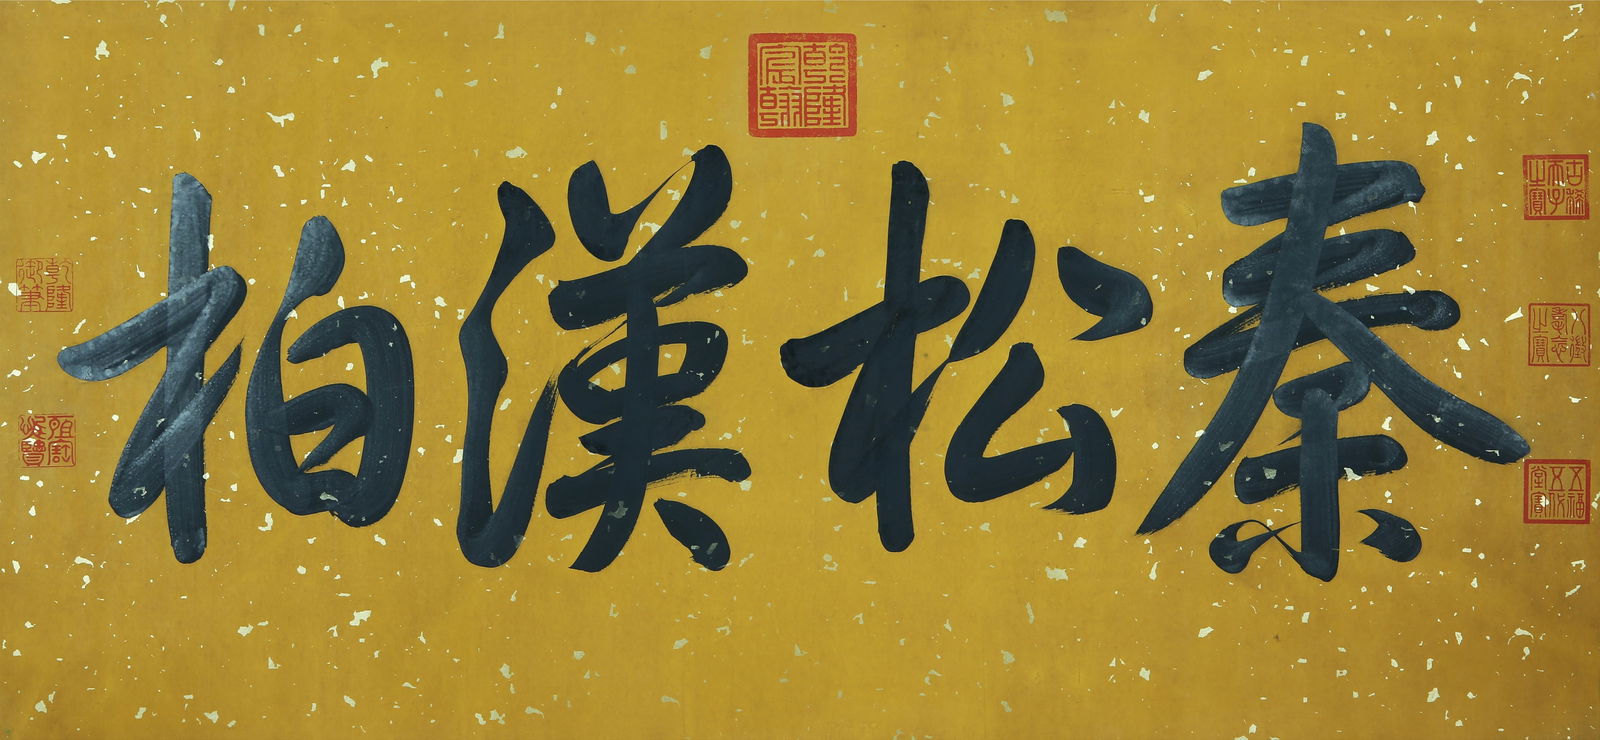 秦松漢柏
乾隆宸翰
古稀天子之寶
八徵耄念之寶
五福五代堂寶
乾隆御筆